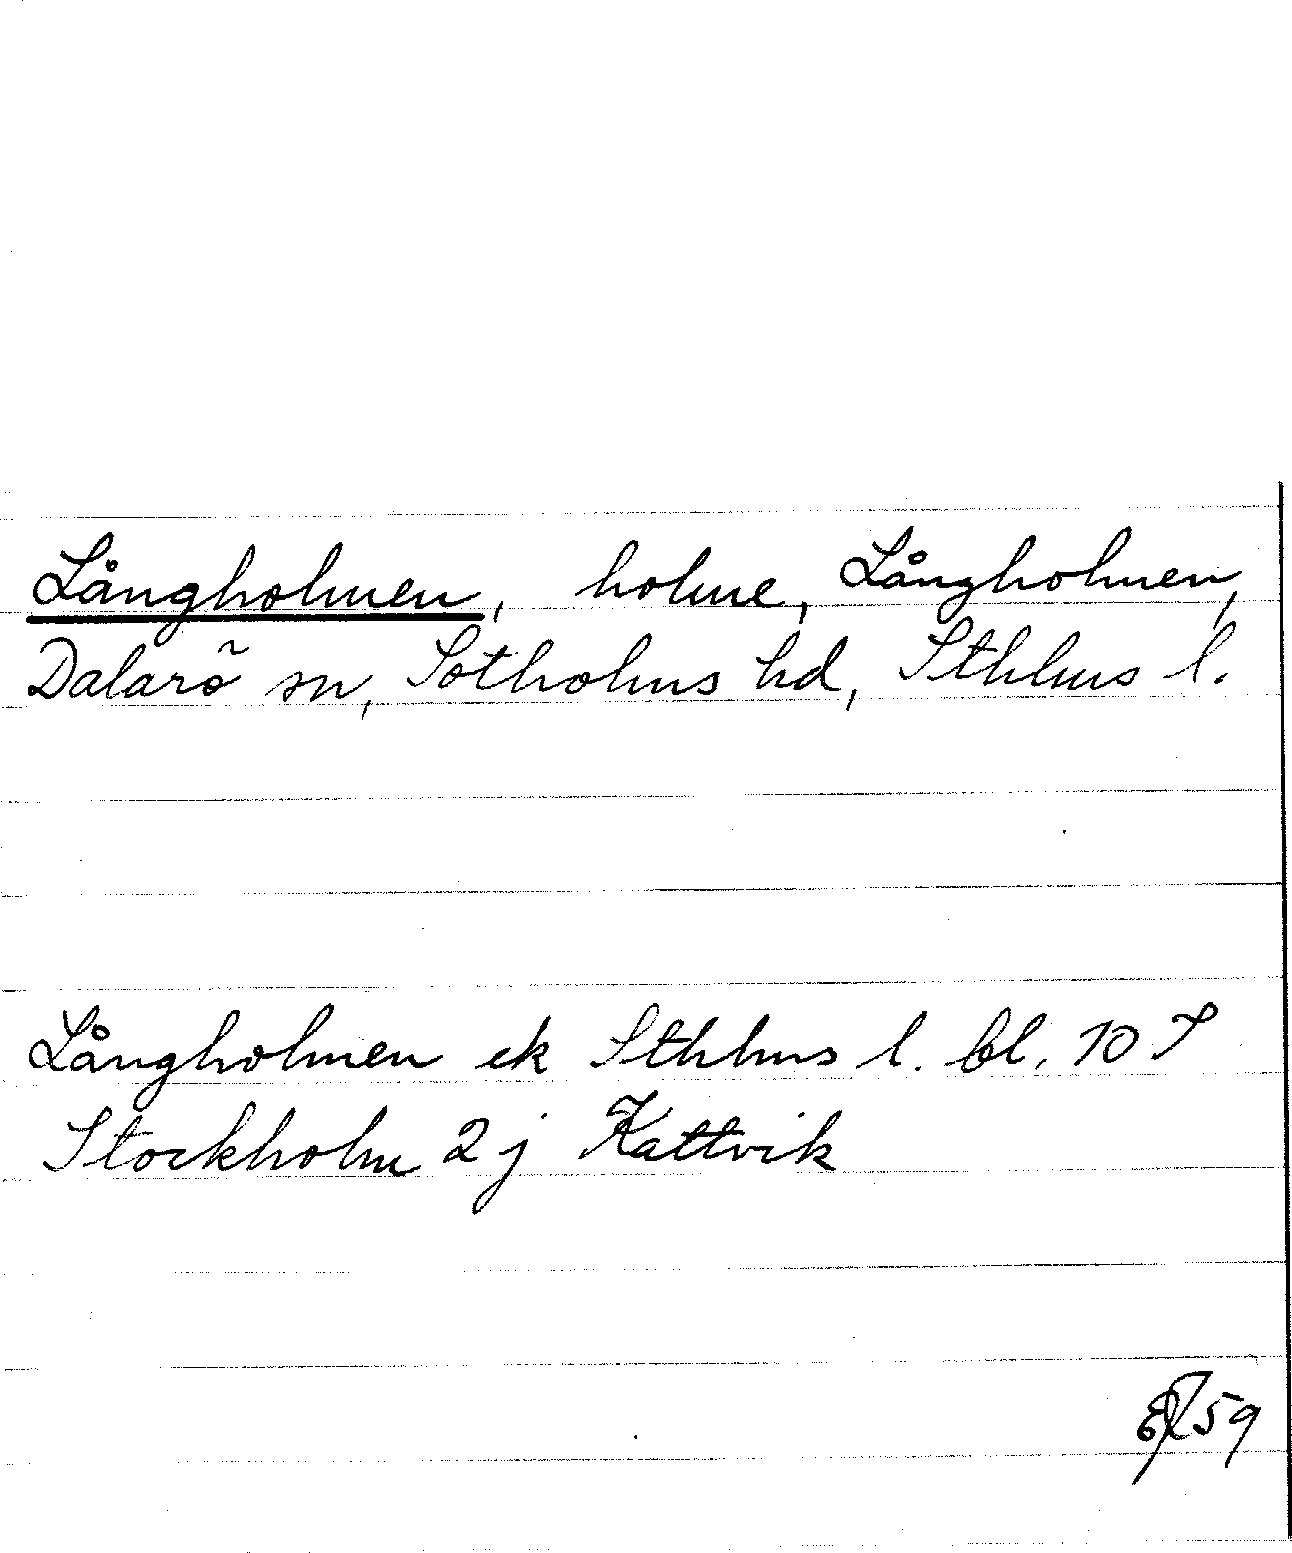 Långholmen, holme, Långholmen,
Dalarö sn, Sotholms hd, Sthlms l.
Långholmen ek Sthlms l. bl. 10 I
Stockholm 2 j Kattvik
59